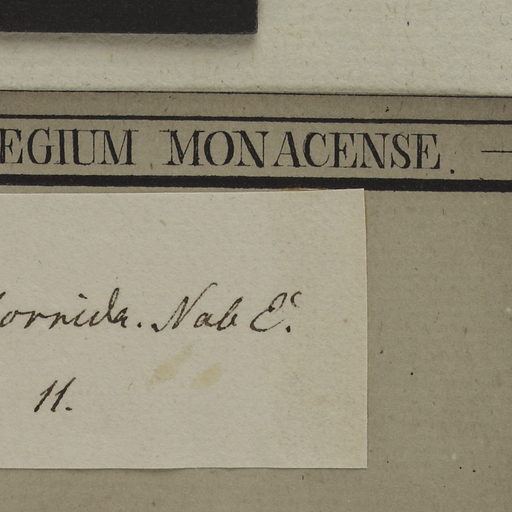 EGIUM MONACENSE.
ornida. Nab E.
11.